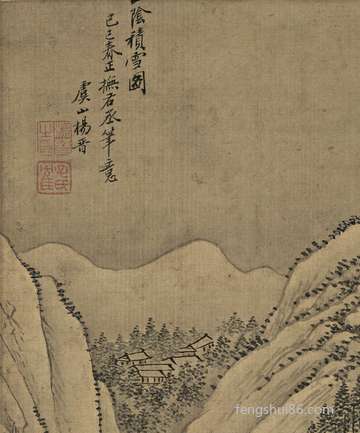 陰積雪圖
己巳春正撫右丞筆意
虞山楊晉
fengshui86.com